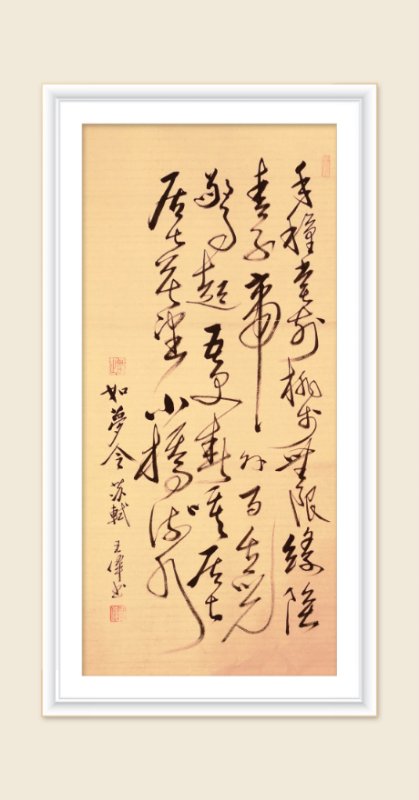 手種堂前桃李無限綠陰
青子帘外百舌兒
驚起五更春睡居士
居士莫忘小橋流水
如夢令 苏軾 王偉书